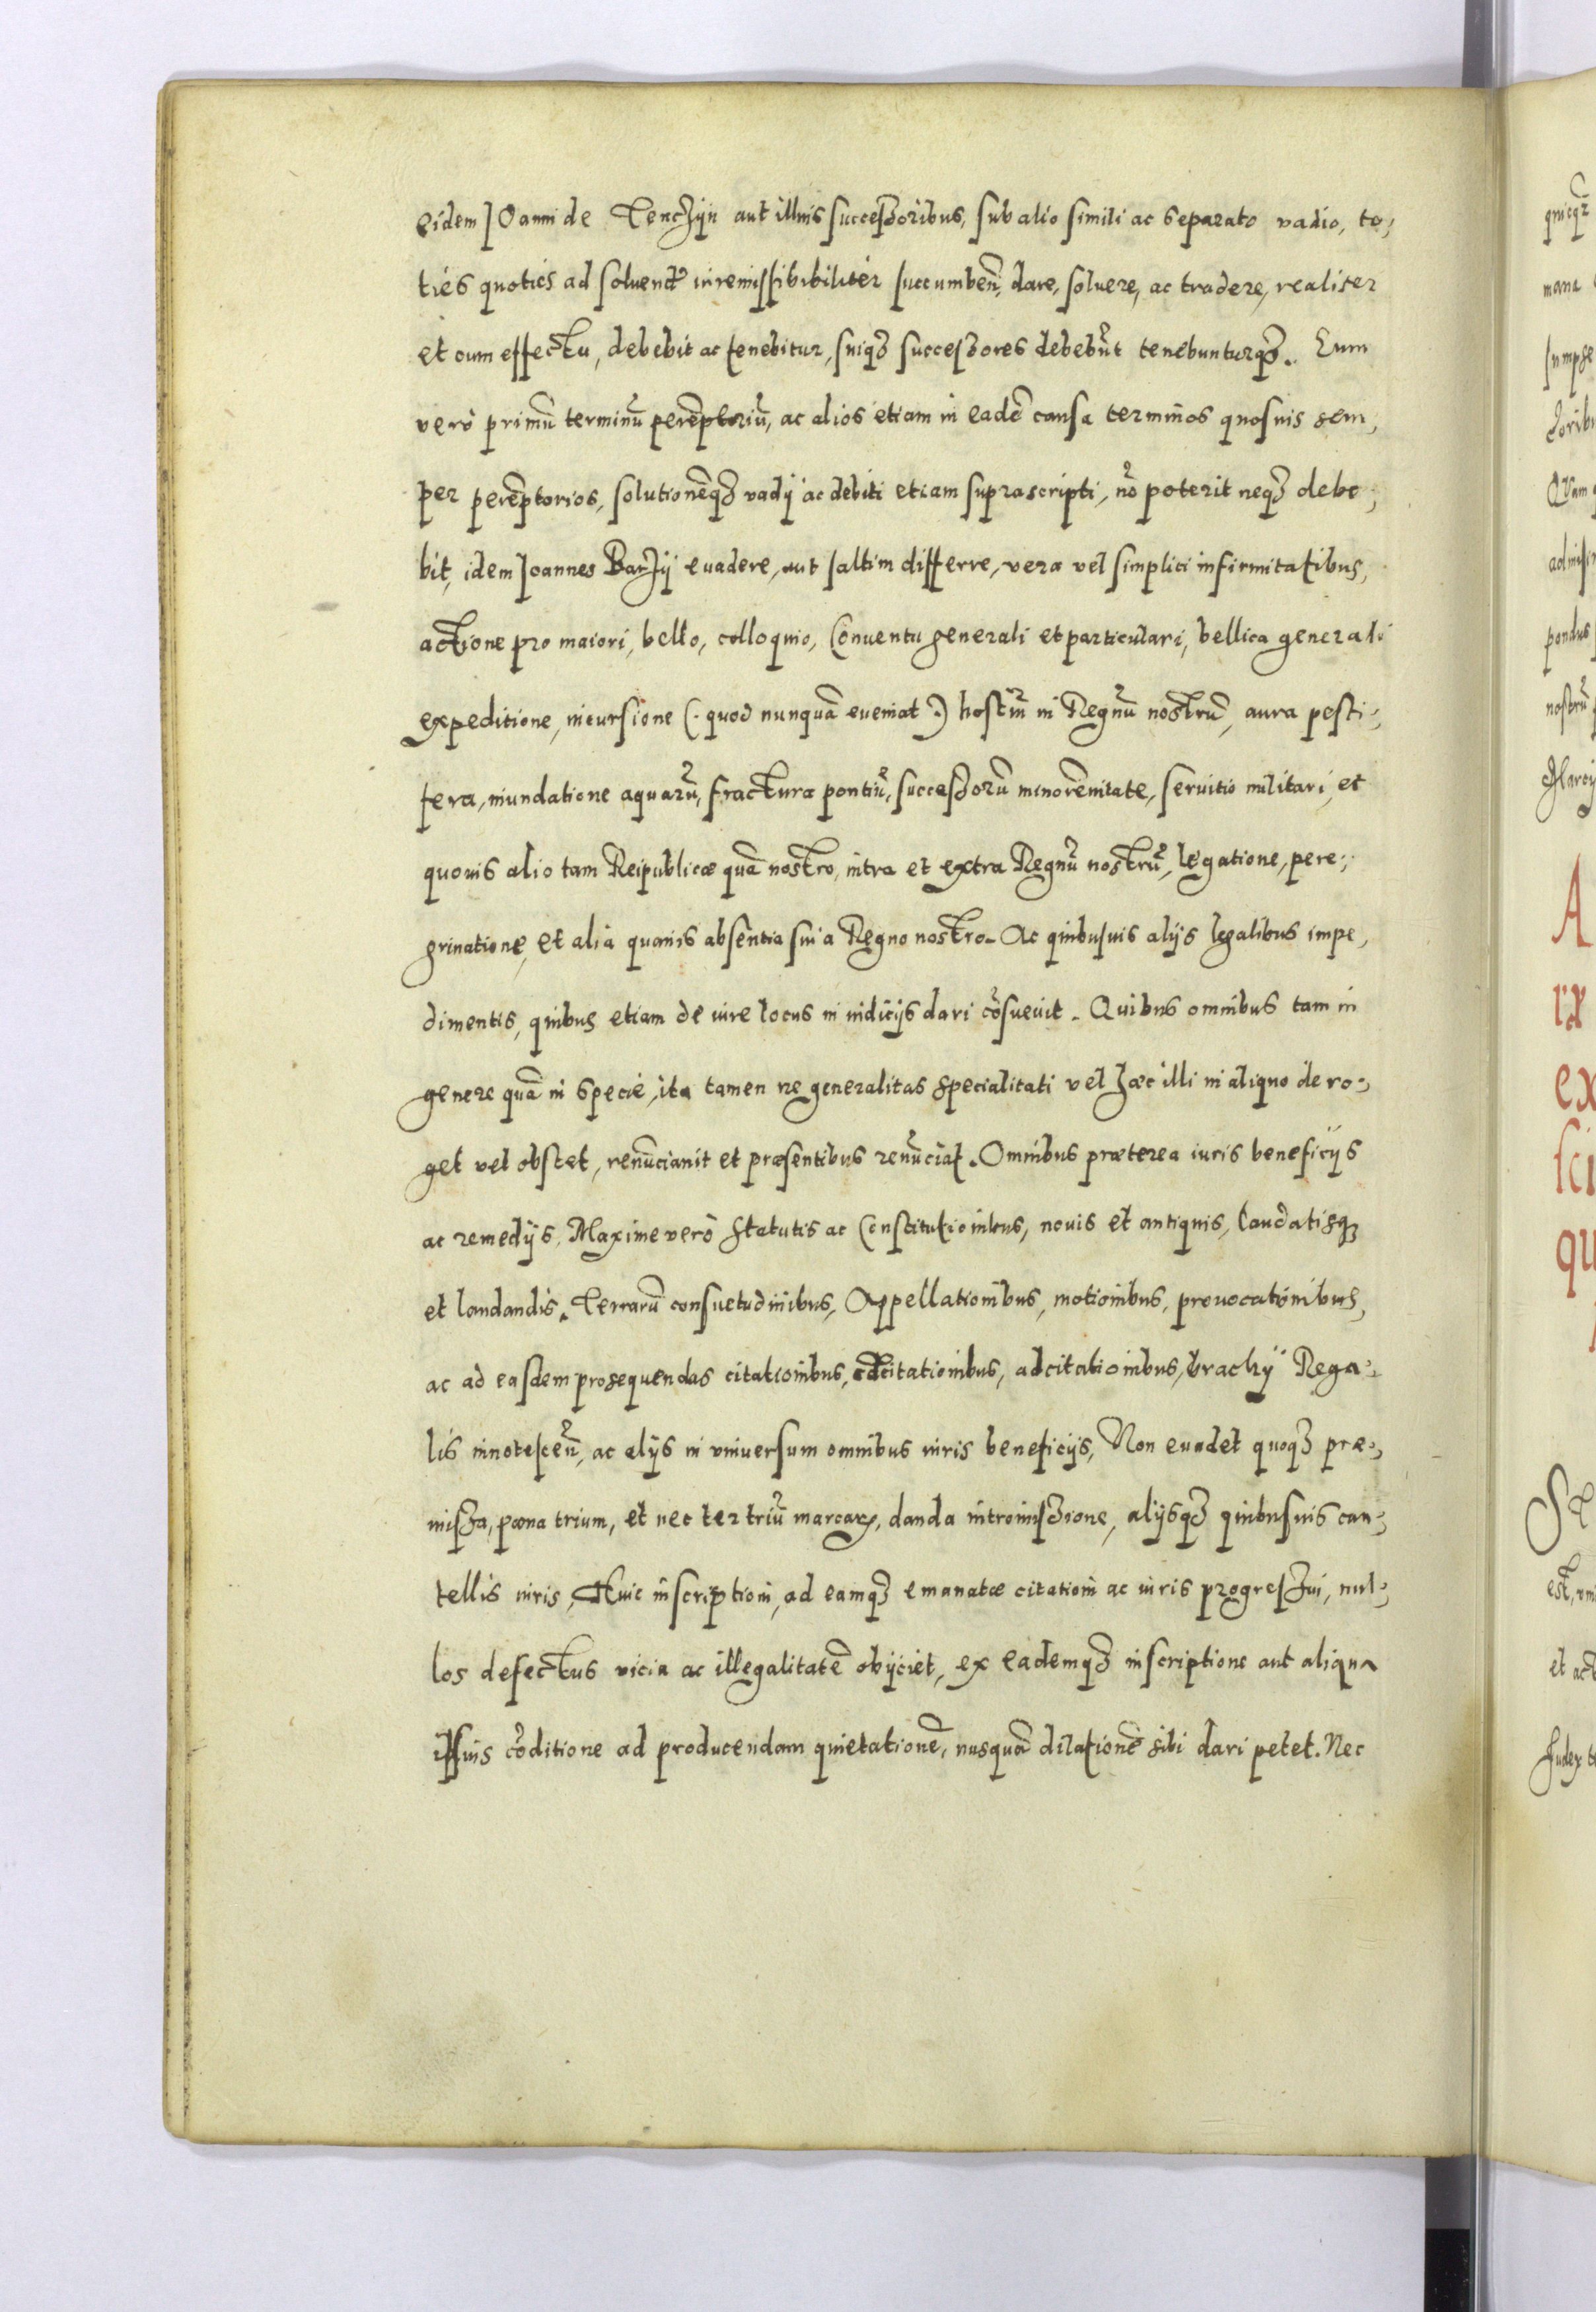 eidem Joanni de Tenczyn aut illius successoribus, sub alio simili ac separato vadio, to,
ties quoties ad soluend' irremissibibiliter succumben̄, dare, soluere, ac tradere, realiter
et cum effectu, debebit ac tenebitur, suiqȝ successores debebūt tenebunturqȝ. Eum
verò primū terminū perēptoriū, ac alios etiam in eadē causa terminos quosuis sem,
per perēptorios, solutionēqȝ vadij ac debiti etiam suprascripti, nō poterit neqȝ debe,
bit, idem Joannes Barzij euadere, aut saltim differre, vera vel simplici infirmitatibus,
actione pro maiori, bello, colloquio, Conuentu generali et particulari, bellica generali
expeditione, incursione (. quod nunquā eueniat .) hostiū in Regnū nostrū, aura pesti-,
fera, inundatione aquarū, fractura pontiū, successorū minorēnitate, seruitio militari, et
quouis alio tam Reipublicæ quā nostro, intra et extra Regnū nostrū, legatione, pere-,
grinatione, et alia quauis absentia sui a Regno nostro. Ac quibusuis alijs legalibus impe,
dimentis, quibus etiam de iure locus in iudicijs dari cōsueuit. Quibus omnibus tam in
genere quā in specie, ita tamen ne generalitas specialitati vel hæc illi in aliquo dero-,
get vel obstet, renūciauit et præsentibus renūciat. Omnibus præterea iuris beneficijs
ac remedijs, Maxime verò statutis ac Constitutionibus, nouis et antiquis, laudatisqȝ
et laudandis. Terrarū consuetudinibus, Appellationibus, motionibus, prouocationibus,
ac ad easdem prosequendas citationibus, adcitationibus, brachij Rega-,
lis innotescen̄, ac alijs in vniuersum omnibus iuris beneficijs, Non euadet quoqȝ præ-,
missa, pœna trium, et nec ter triū marcaꝝ, danda intromissione, alijsqȝ quibusuis cau-,
tellis iuris, Huic inscriptioni, ad eamqȝ emanatæ citationi ac iuris progressui, nul-,
los defectus vicia ac illegalitatē obijciet, ex eademqȝ inscriptione aut aliqua
ipsius cōditione ad producendam quietationē, nusquā dilationē sibi dari petet. Nec